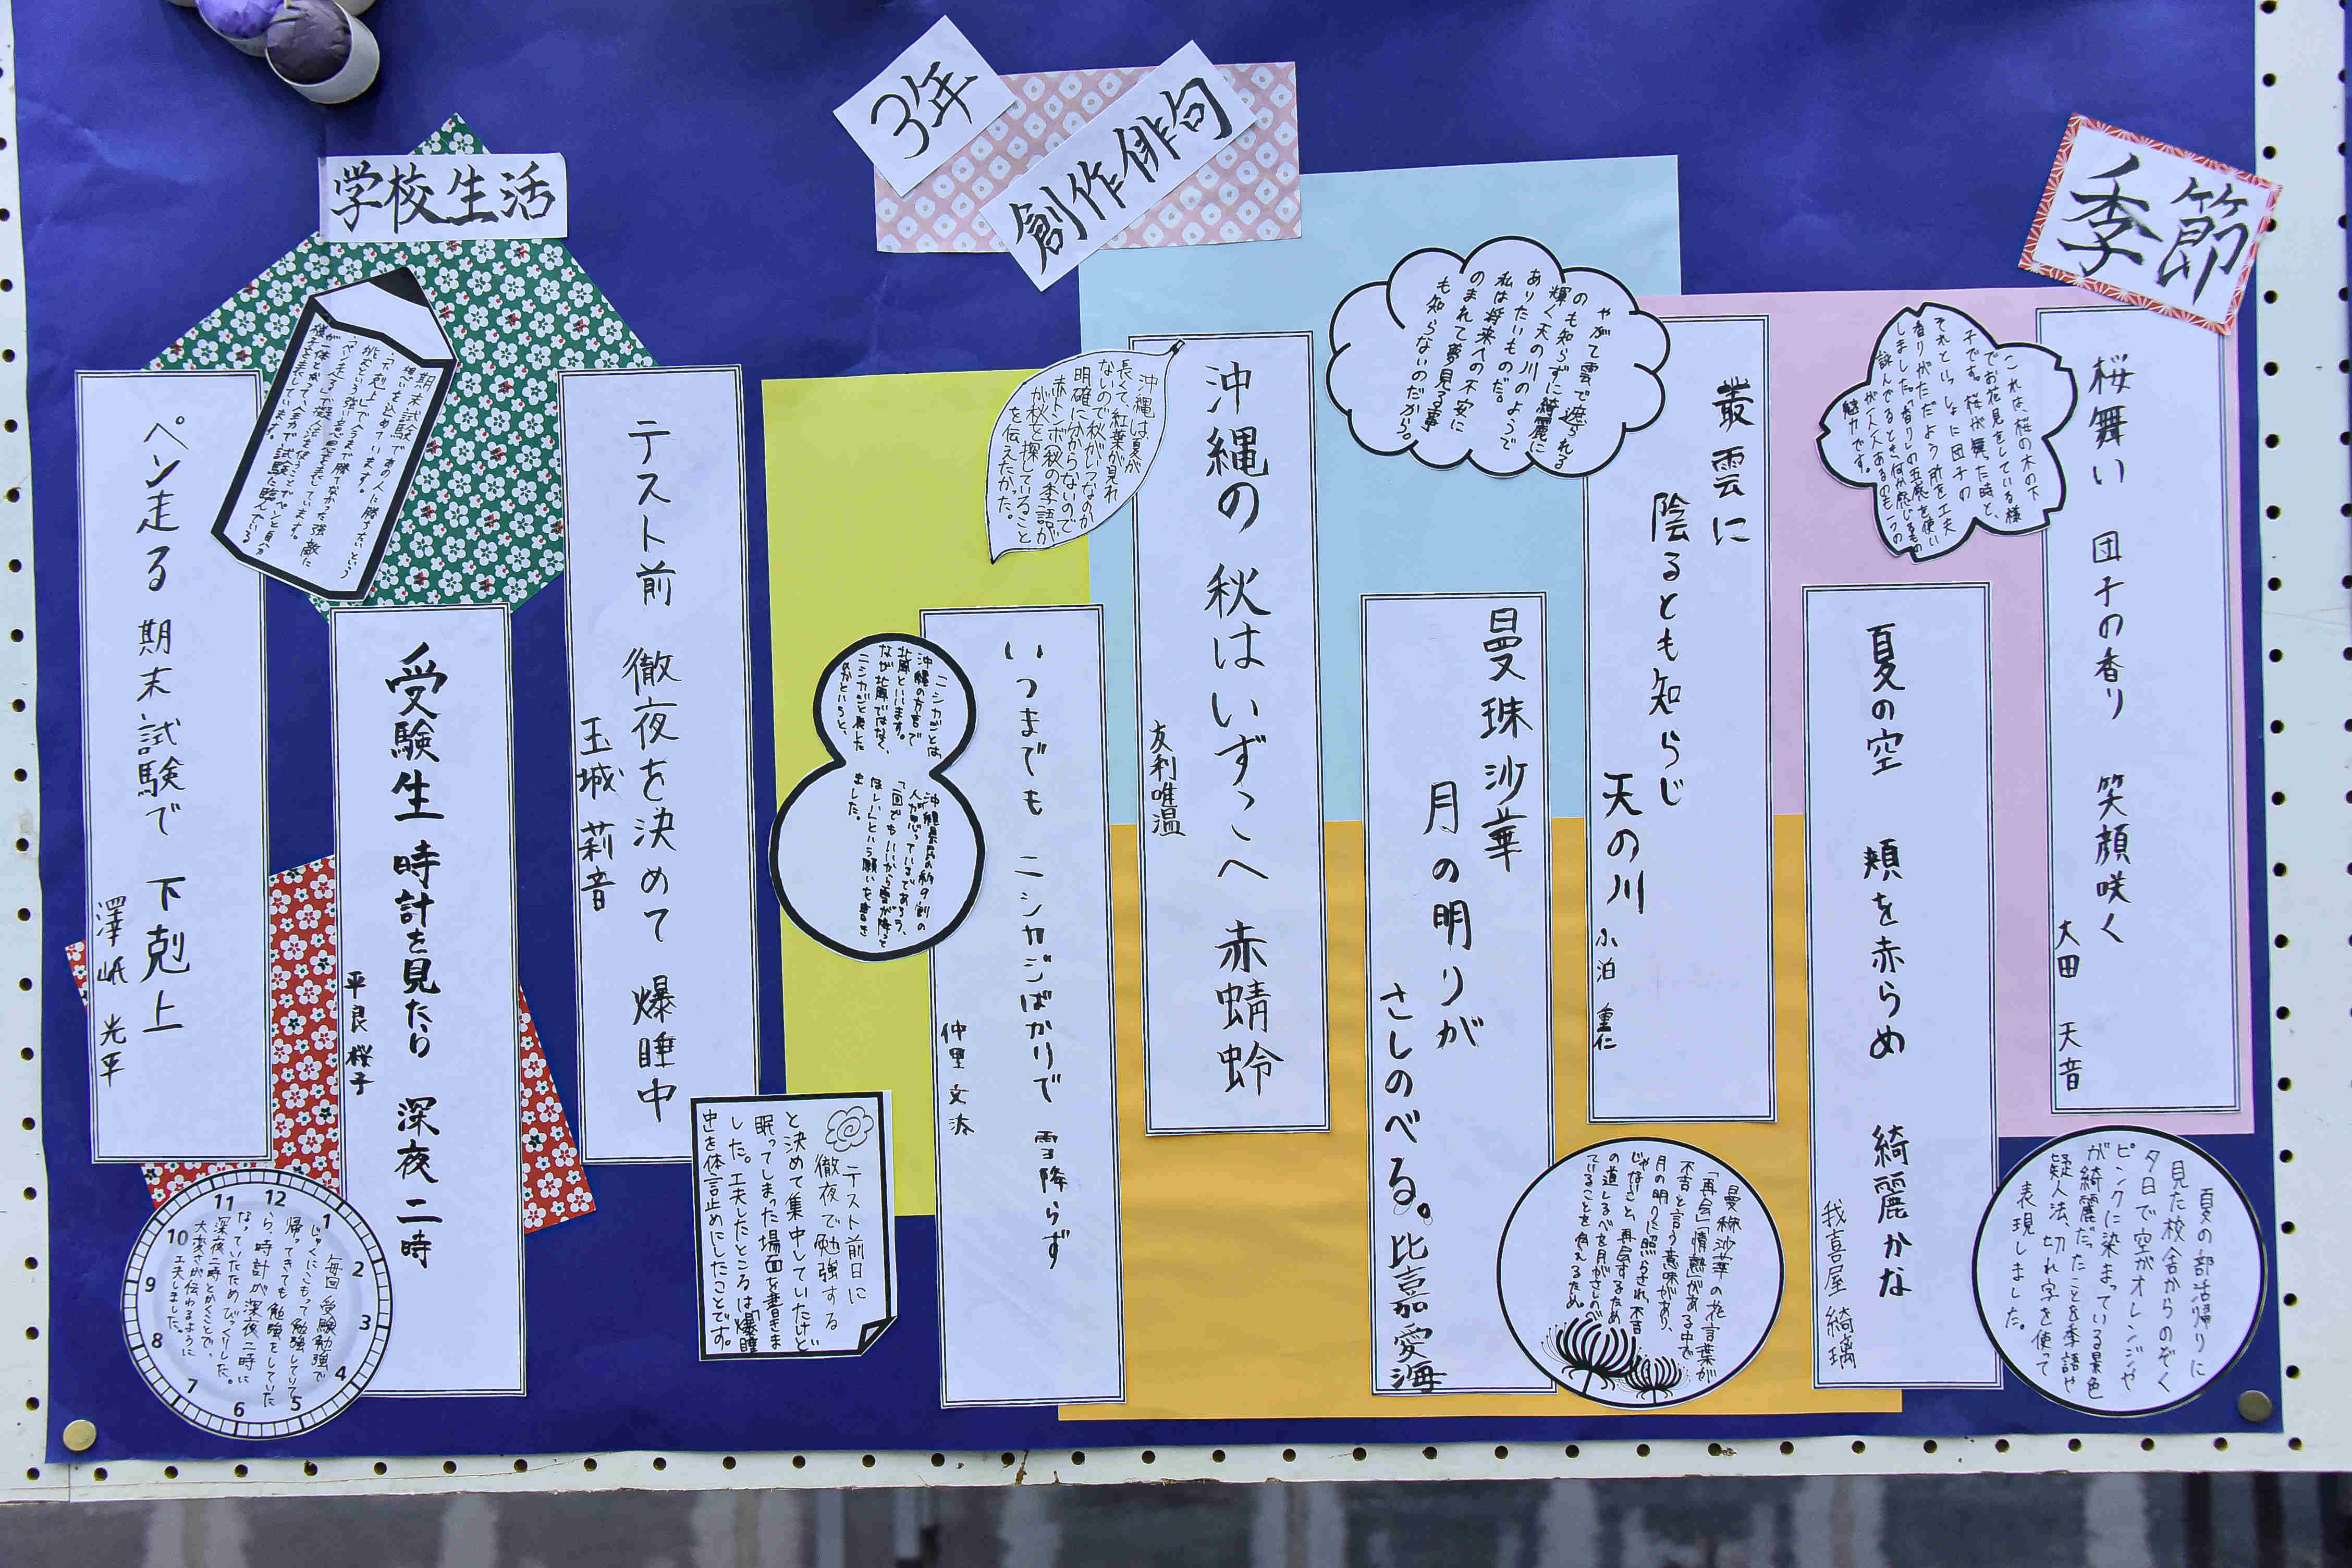 3年
創作俳句
季節
桜舞い 団子の香り 笑顔咲く
大田 天音
これは、桜の木の下
でお花見をしている様
子です。桜が舞った時と、
それといっしょに団子の
香りがただよう所を工夫
しました。「香り」の五感を使い
詠んでるとき、何か感じるもの
が一人一人あるのも一つの
魅力です。
夏の空 頬を赤らめ 綺麗かな
我喜屋 綺璃
夏の部活帰りに
見た校舎からのぞく
夕日で空がオレンジや
ピンクに染まっている景色
が綺麗だったことを季語や
疑人法、切れ字を使って
表現しました。
叢雲に
陰るとも知らじ
天の川
小泊 重仁
やがて雲で遮られる
のも知らずに綺麗に
輝く天の川のようで
ありたいものだ。
私は将来への不安に
のまれて夢見る事
も知らないのだから。
曼珠沙華
月の明りが
さしのべる。
比嘉愛海
曼珠沙華の花言葉が
「再会」「情熱」がある中で
不吉と言う意味があり、
月の明りに照らされ、不吉
じゃないさと、再会するため
の道しるべを月がさしのべ
ていることを伝えるため。
沖縄の 秋はいずこへ 赤蜻蛉
友利唯温
沖縄は夏が
長くて、紅葉が見れ
ないので秋がいつなのか
明確に分からないので
赤トンボ(秋の季語)が
が秋を探していること
を伝えたかった。
いつまでも ニシカジばかりで 雪降らず
仲里 文添
ニシカジとは
沖縄の方言で
北風といいます。
なぜ北風ではなく、
ニシカジと表した
のかというと、
沖縄県民の約9割の
人が思っているであろう、
「一回でもいいから雪が降って
ほしい」という願いを書き
ました。
学校生活
テスト前 徹夜を決めて 爆睡中
玉城 莉音
テスト前日に
徹夜で勉強する
と決めて集中していたけど
眠ってしまった場面を書きま
した。工夫したところは「爆睡
中」を体言止めにしたことです。
受験生 時計を見たら 深夜二時
平良 桜子
毎回 受験勉強で
じゅくにこもって勉強していて
帰ってきても勉強をしていた
ら、時計が深夜二時に
なっていたためびっくりした。
深夜二時とかくことで、
大変さが伝わるように
工夫しました。
12
1
2
3
4
5
6
7
8
9
10
11
ペン走る 期末試験で 下剋上
澤岻 光平
期末試験であの人に勝ちたいという
想いを込めています。
「下剋上」で今まで勝てなかった強敵に
挑むという強い意思等を表しています。
「ペン走る」で擬人法を使うことでペンと自分
が一体となって、全力で試験に臨んでいる
様子を表しています。